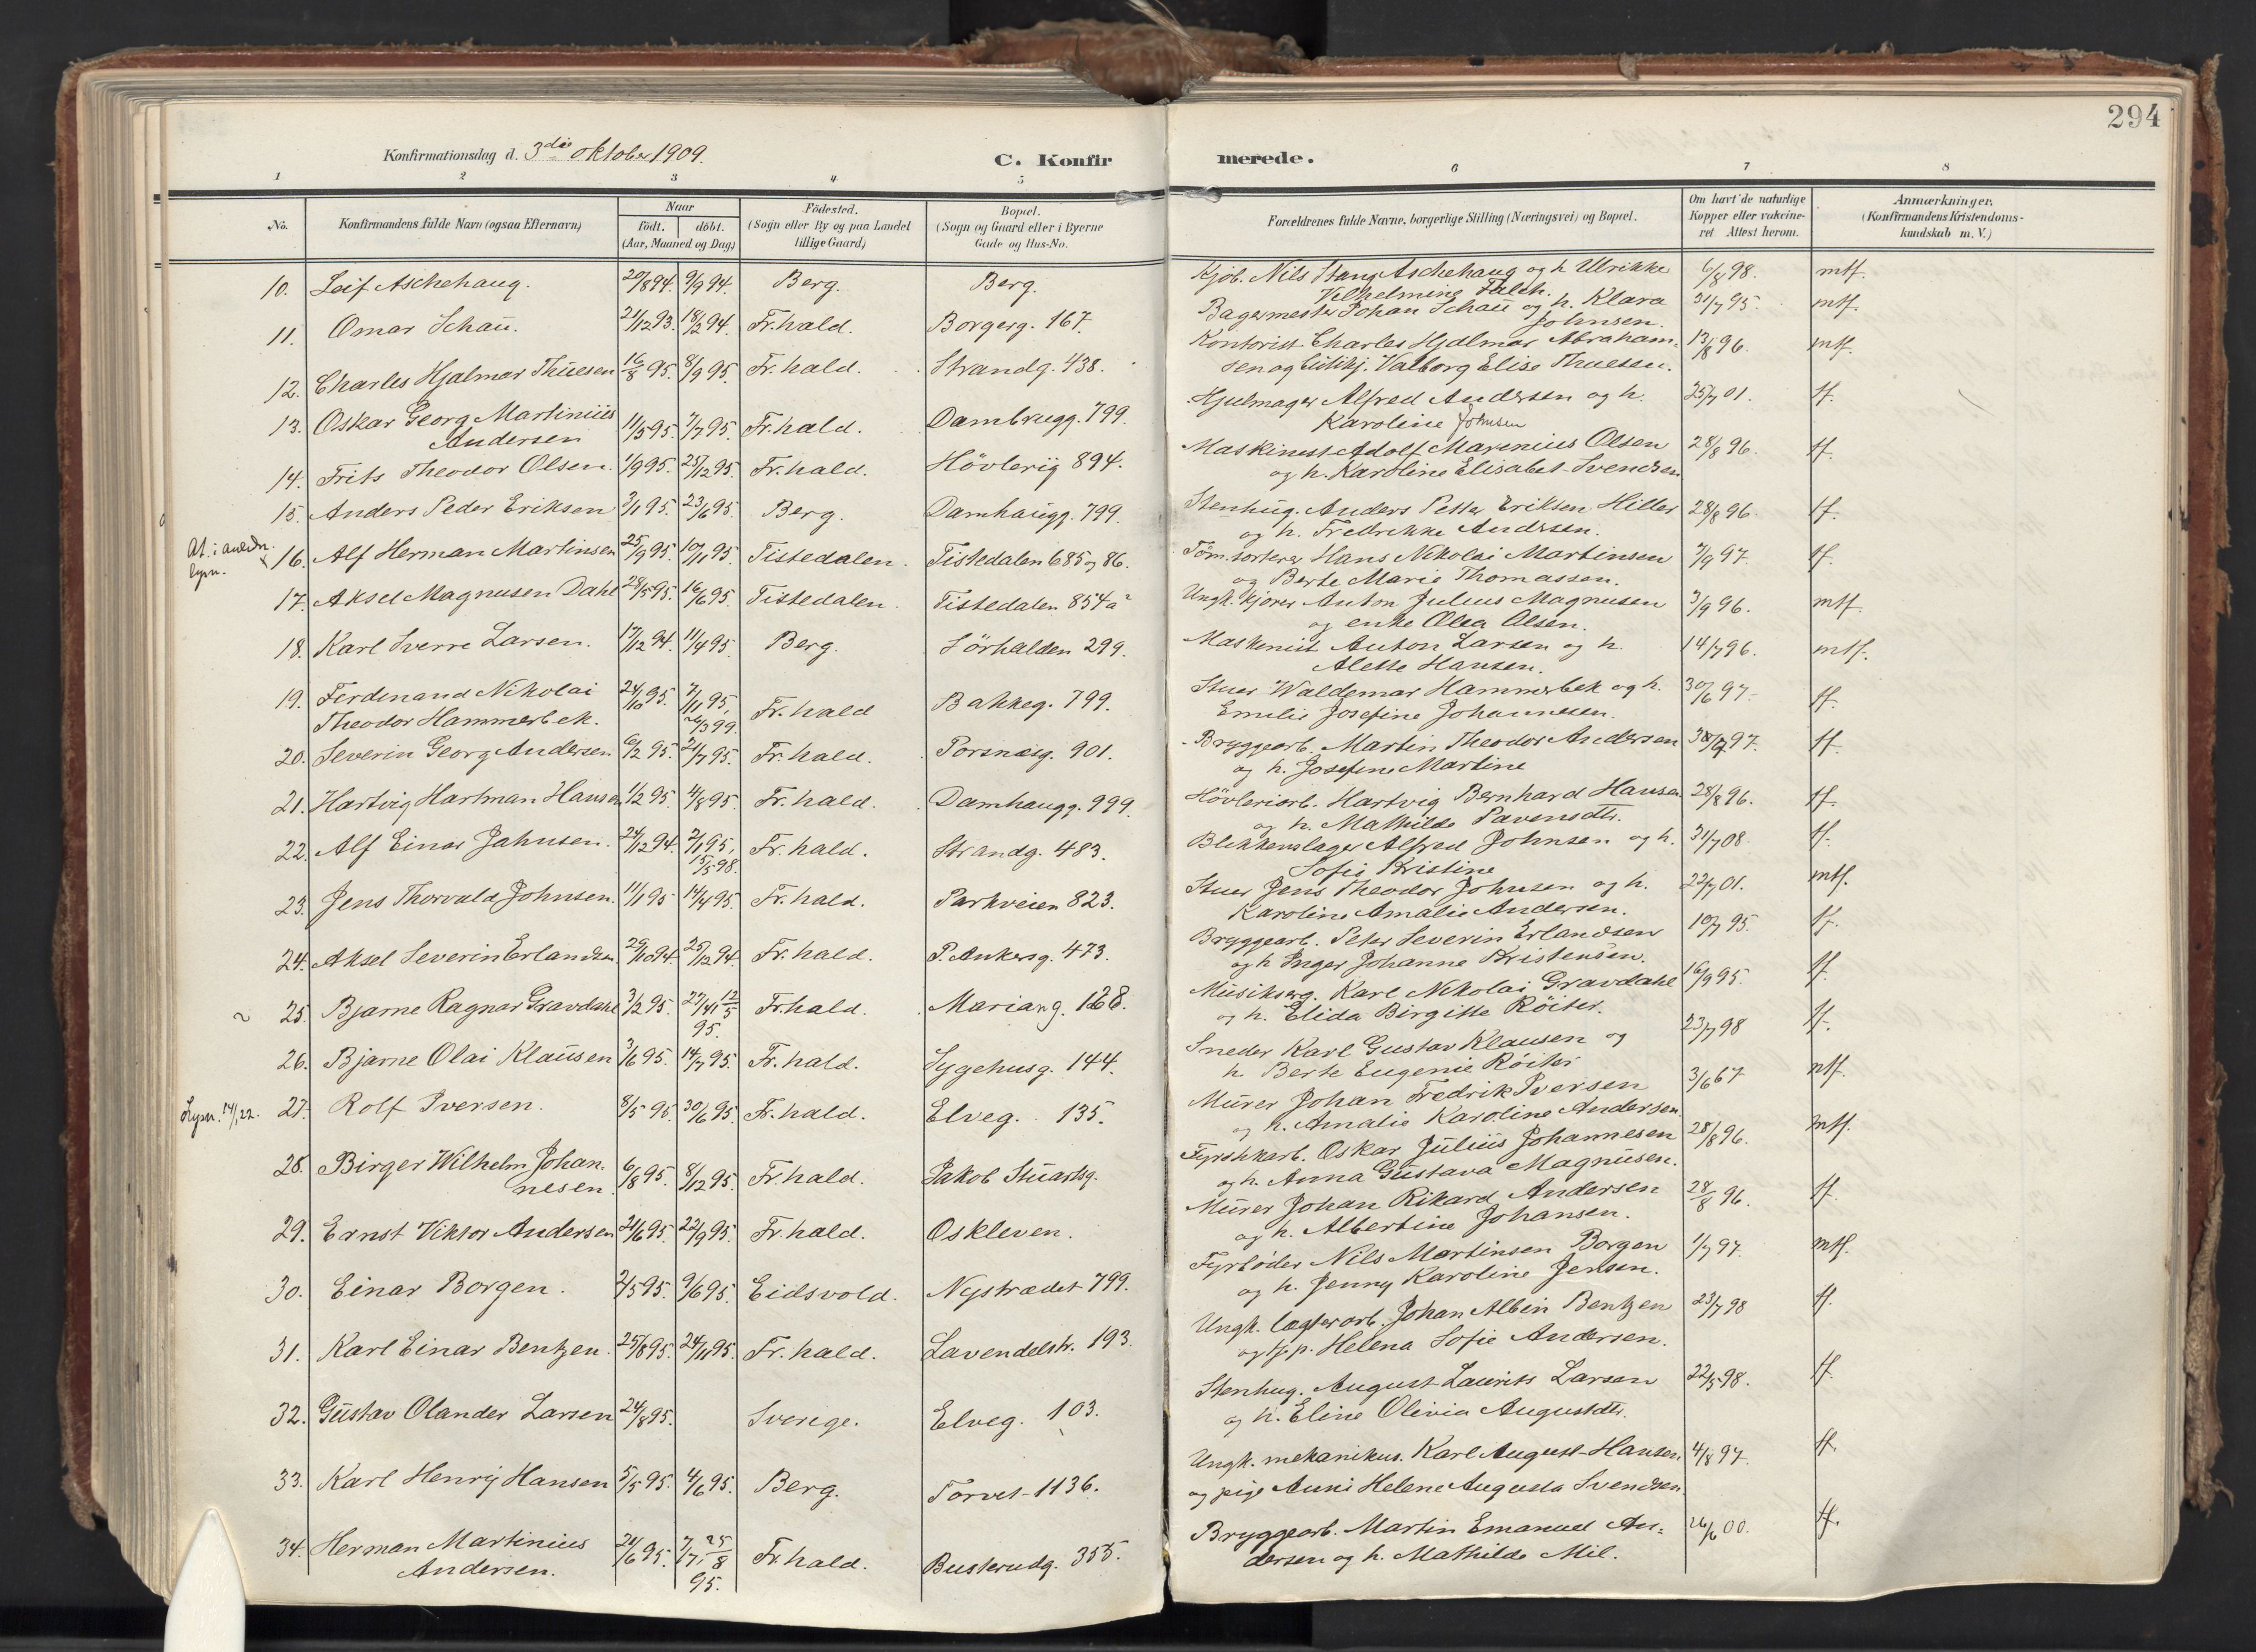 294
Konfirmationsdag d. 3die oktober 1909.
C. Konfirmerede.
1 2 3 4 5 6 7 8
No.
Konfirmandens fulde Navn (ogsaa Efternavn)
Naar
født. døbt.
(Aar, Maaned og Dag)
Fødested.
(Sogn eller By og paa Landet
tillige Gaard)
Bopæl.
(Sogn og Gaard eller i Byerne
Gade og Hus-No.
Forældrenes fulde Navne, borgerlige Stilling (Næringsvei) og Bopæl.
Om havt de naturlige
Kopper eller vaccine-
ret Attest herom.
Anmærkninger.
(Konfirmandens Kristendoms-
kundskab m. V.)
10. Leif Aschehaug. 20/8 94. 9/9 94. Berg. Berg. Kjøb. Nils Stang Aschehaug og h. Ulrikke 6/8 98. mtf.
Vilhelmine Falch.
11. Omar Schau. 21/12 93. 18/2 94. Fr.hald. Borgerg. 167. Bagermester Johan Schau og h. Klara 31/7 95. mtf.
Johnsen.
12. Charles Hjalmar Thuesen 16/8 95. 8/9 95. Fr.hald. Strandg. 438. Kontorist Charles Hjalmar Abraham- 13/8 96. mtf.
sen og Valborg Elise Thuesen.
13. Oskar Georg Martinius 11/5 95. 7/7 95. Fr.hald. Dambrugg. 799. Hjulmager Alfred Andersen og h. 25/7 01. tf.
Andersen Karoline Johnsen
14. Frits Theodor Olsen. 1/9 95. 25/12 95. Fr.hald. Høvlerig 894. Maskinest Adolf Marenius Olsen 28/8 96. tf.
og h. Karoline Elisabet Svendsen
15. Anders Peder Eriksen 3/1 95. 23/6 95. Berg. Damhaugg. 799. Stenhug. Anders Petter Eriksen Hiller 28/8 96. tf.
og h. Fredrikke Andersen.
At. i anledn.
16. Alf Herman Martinsen 25/9 95. 10/11 95. Tistedalen. Tistedalen 685 og 86. Tøm.sorterer Hans Nikolai Martinsen 7/9 97. tf.
og Berte Marie Thomassen.
17. Aksel Magnusen Dahl 28/5 95. 16/6 95. Tistedalen. Tistedalen 854a Ungk. kjører Anton Julius Magnusen 3/9 96. mtf.
og enke Olea Olsen.
18. Karl Sverre Larsen. 17/12 94. 11/4 95. Berg. Sørhalden 299. Maskinist Anton Larsen og h. 14/7 96. mtf.
Alette Hansen.
19. Ferdinand Nikolai 24/10 95. 7/11 95, Fr.hald Bakkeg. 799. Stuer Waldemar Hammerbek og h. 30/6 97. tf.
Theodor Hammerbek. 26/3 99. Emilie Josefine Johannesen.
20. Severin Georg Andersen 6/2 95. 21/7 95. Fr.hald. Porsnæsg. 901. Bryggearb. Martin Theodor Andersen 97. tf.
og h. Josefine Martine
21. Hartvig Hartman Hansen 1/2 95. 4/8 95. Fr.hald. Damhaugg. 999. Høvleriarb. Hartvig Bernhard Hansen 28/8 96. tf.
og h. Mathilde Pavensdtr.
22. Alf Einar Jahnsen. 24/12 94. 2/1 95, Fr.hald. Strandg. 483. Blikkenslager Alfred Johnsen og h. 31/7 08. tf.
15/5 98. Sofie Kristine
23. Jens Thorvald Johnsen. 11/1 95 14/4 95. Fr.hald. Parkveien 823. Stuer Jens Theodor Johnsen og h. 22/7 01. mtf.
Karoline Amalie Andersen.
24. Aksel Severin Erlandsen. 29/10 94. 25/12 94. Fr.hald. P. Ankersg. 473. Bryggearb. Peter Severin Erlandsen 10/7 95. tf.
og h Inger Johanne Kristensen.
25. Bjarne Ragnar Gravdahl 3/2 95. 27/4, 12/5 Fr.hald. Mariang. 168. Musikserg. Karl Nikolai Gravdahl 16/9 95. tf.
95. og h. Elida Birgitte Røiter.
26. Bjarne Olai Klausen 3/6 95. 14/7 95. Fr.hald. Sygehusg. 144. Sneder Karl Gustav Klausen og 23/7 98 tf.
h. Berte Eugenie Røiter
Lysn. 14/1 22. 27. Rolf Iversen. 8/5 95. 30/6 95. Fr.hald. Elveg. 135. Murer Johan Fredrik Iversen 3/6 67 mtf.
og h. Amalie Karoline Andersen.
28. Birger Wilhelm Johan- 6/8 95. 8/12 95. Fr.hald. Jakob Stuartsg. Fyrstikarb. Oskar Julius Johannesen 28/8 96. mtf.
nesen. og h. Anna Gustava Magnusen.
29. Ernst Viktor Andersen 21/6 95. 22/9 95. Fr.hald. Oskleven. Murer Johan Rikard Andersen 28/8 96. tf.
og h. Albertine Johansen.
30. Einar Borgen. 2/5 95. 9/6 95. Eidsvold. Nystrædet 799. Fyrbøder Nils Martinsen Borgen 1/7 97. mtf.
og h. Jenny Karoline Jensen.
31. Karl Einar Bentzen. 25/8 95. 24/11 95. Fr.hald. Lavendelstr. 193. Ungk. lagterarb. Johan Albin Bentzen 23/7 98 tf.
og tj.p. Helena Sofie Andersen.
32. Gustav Olander Larsen 24/8 95. Sverige. Elveg. 103. Stenhug. August Laurits Larsen 22/5 98. tf.
og h. Eline Olivia Augustdtr.
33. Karl Henry Hansen 5/5 95. 4/6 95. Berg. Torvet 1136. Ungk. mekanikus. Karl August Hansen 4/8 97. tf.
og pige Anni Helene Augusta Svendsen
34. Herman Martinius 21/6 95. 7/7, 25/8 Fr.hald. Busterudg. 355. Bryggearb. Martin Emanuel An- 26/6 00. tf.
Andersen. 95. dersen og h. Mathilde Mil.